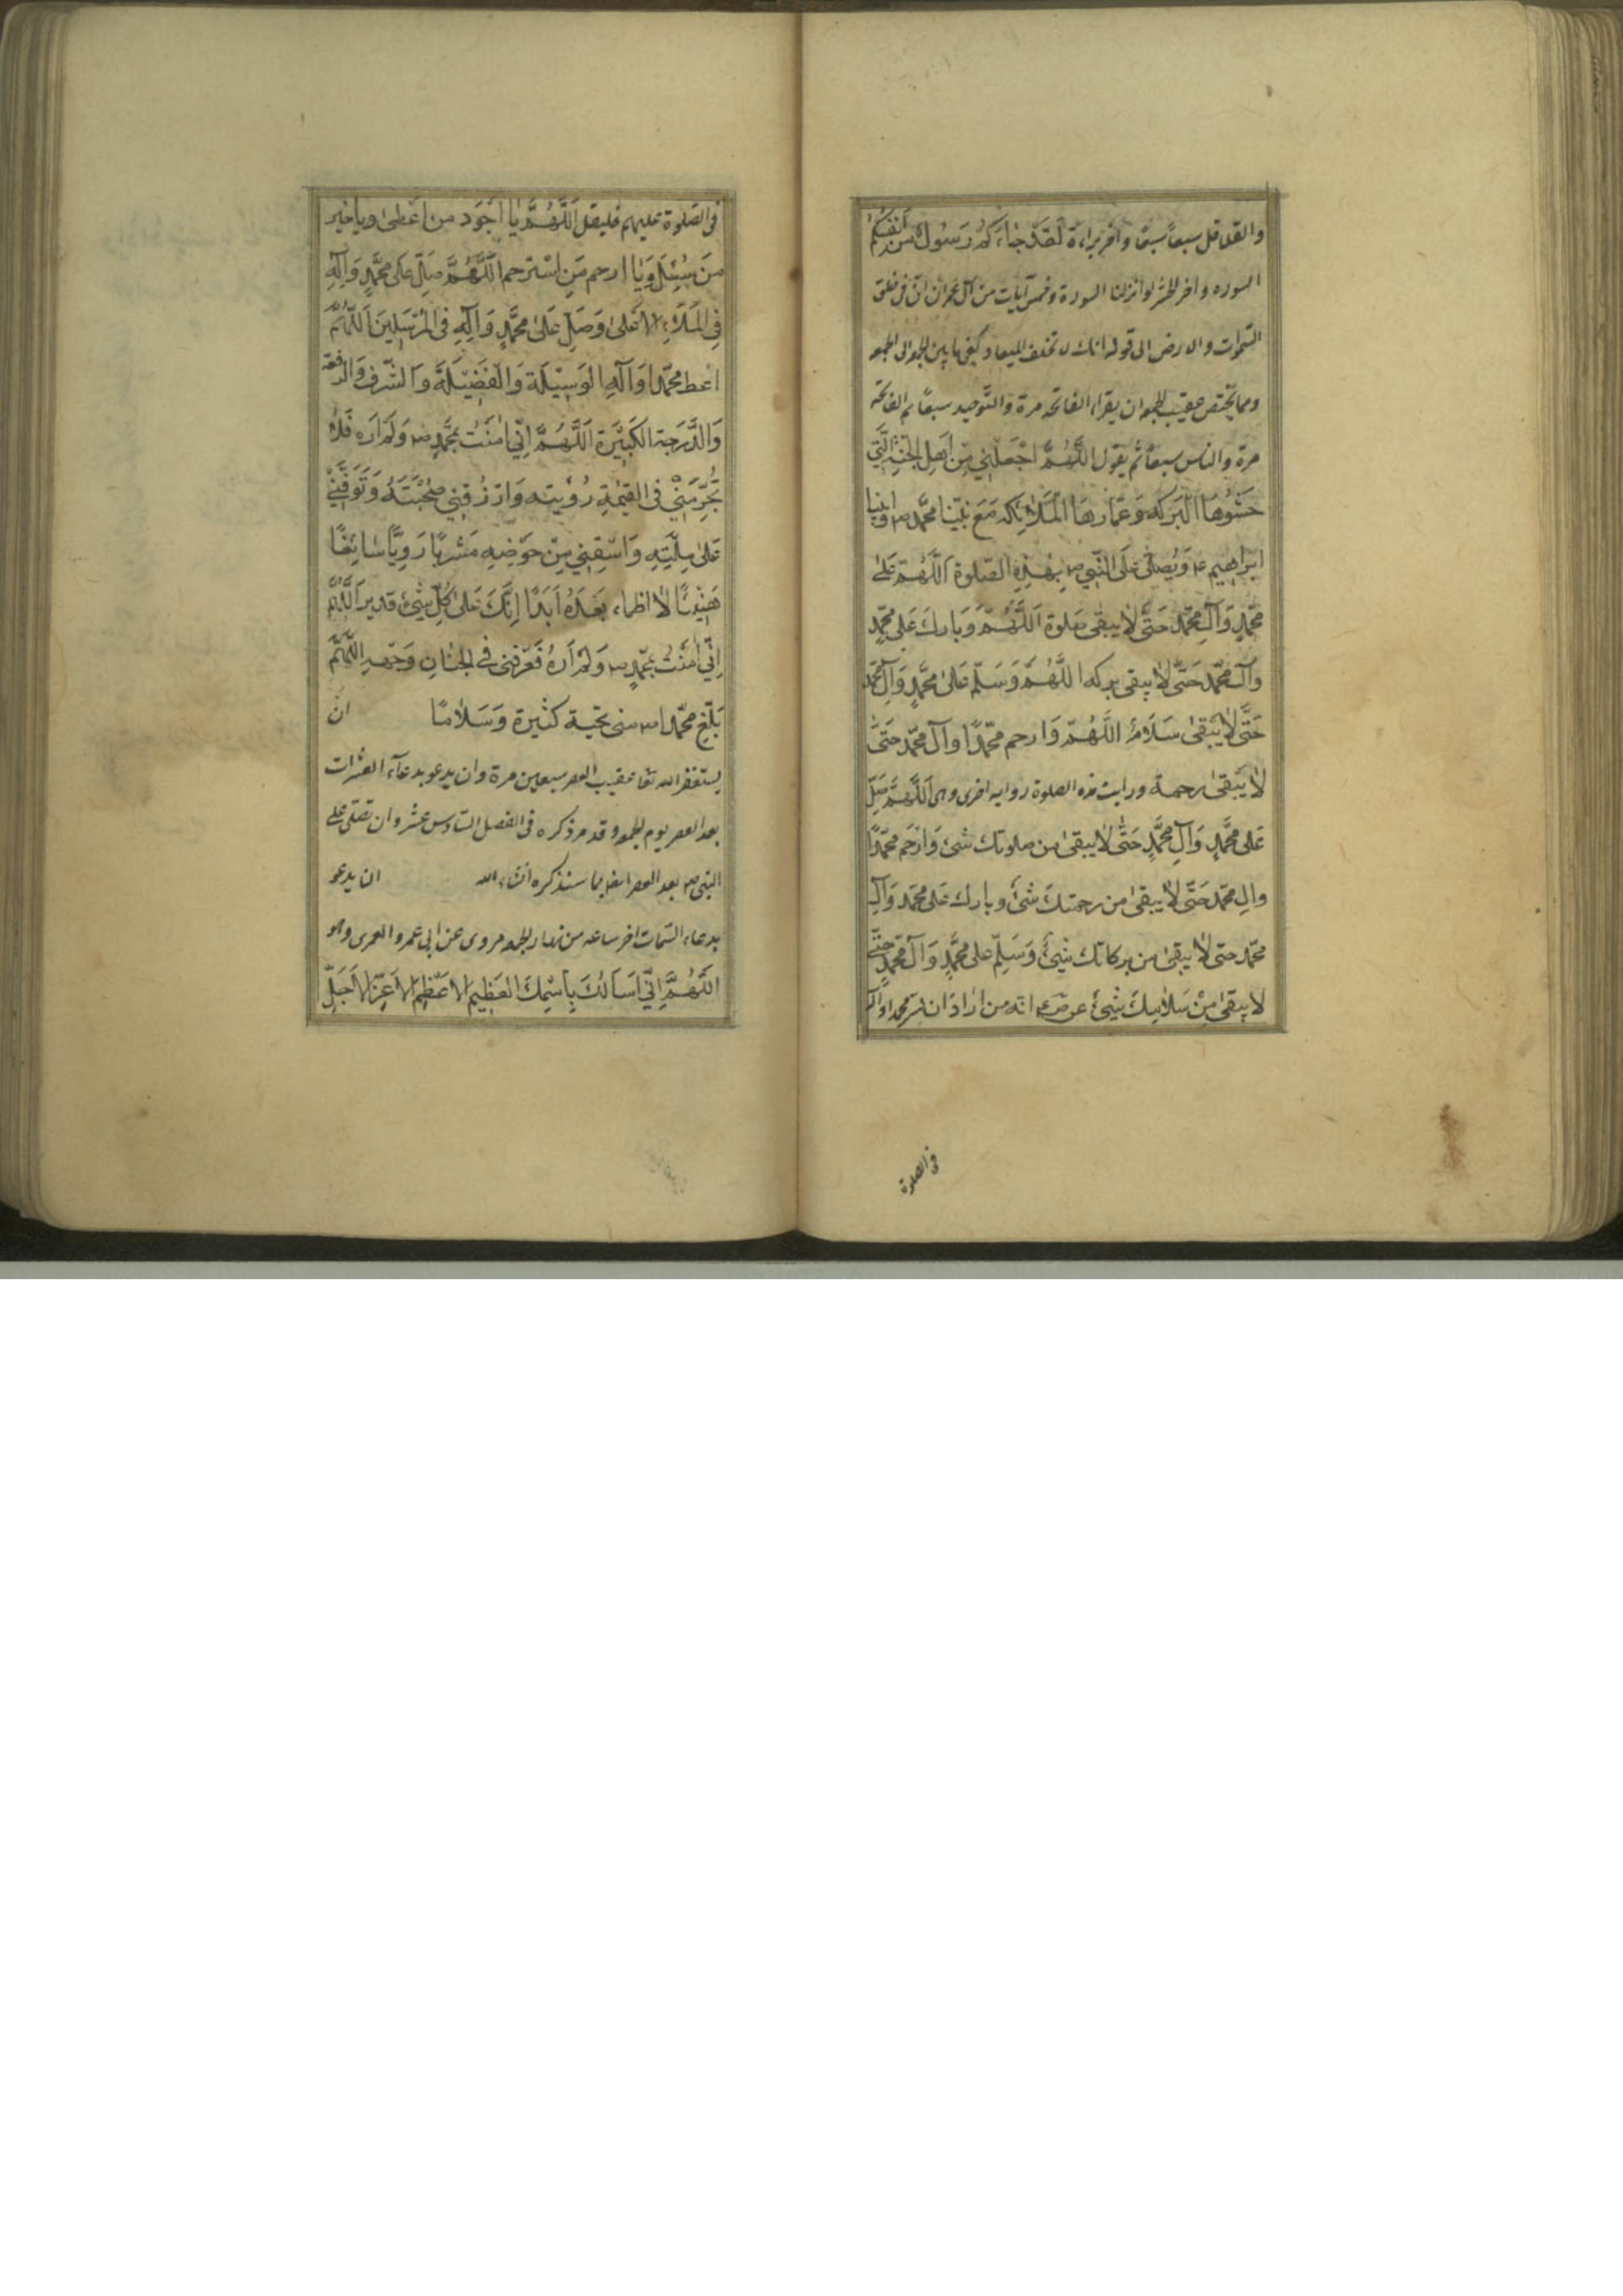 والقلاقل سبعاً سبعاً وآخر براءة لَقَدْ جٰاءَكُمْ رَسُولٌ مِنْ اَنْفُسِكُمْ
السوره واخر الحشر لو انزلنا السورة وخمس آيات من آل عمران ان في خلق
السّموات والارض الى قوله انك لا تخلف الميعاد كفى ما بين الجمعة الى الجمعة
ومما يختص عقيب الجمعة ان يقراء الفاتحه مرة والتّوحيد سبعاً ثم الفاتحة
مرة والناس سبعاً ثم يقول اللَّهُمَّ اجْعَلْنِي مِنْ اَهْلِ الجَنّةِ الَّتِي
حَشْوُهَا الْبَرَكَة وَعُمّارهَا الْمَلَائِكَه مَعَ نَبِيِّنا مُحَمَّد ص وابينا
ابراهيم ع وَيُصَلّى عَلَى النَّبِي ص بِهٰذِهِ الصّلوة اَللَّهُمَّ صَلِّ عَلىٰ
مُحَمَّدٍ وَآلِ مُحَمَّد حَتّٰى لاٰ يبقى صَلوة اَللَّهُمَّ وَبَارِكْ عَلى مُحَمَّدٍ
وَآلِ مُحَمَّد حَتّٰى لاٰ يبقى بركه اللَّهُمَّ وَسَلِّم عَلىٰ مُحَمَّدٍ وَآلِ مُحَمَّد
حَتّٰى لاٰ يَبْقىٰ سَلَامٌ اللَّهُمَّ وَارحم مُحَمَّدًا وآل مُحَمَّد حَتّٰى
لاٰ يَبْقىٰ رحمة ورايت هذه الصلوة رواية اخرى وهي اَللَّهُمَّ صَلِّ
عَلىٰ مُحَمَّدٍ وَآلِ مُحَمَّدٍ حَتّٰى لاٰ يبقىٰ من صلوتك شئ وَارْحَم مُحَمَّدًا
وال مُحَمَّد حَتّٰى لاٰ يبقىٰ من رحمتك شئ وبارك عَلى مُحَمَّد وَآلِ
مُحَمَّد حتى لاٰ يبقىٰ من بركاتك شَيْئ وَسَلِّمْ على مُحَمَّدٍ وَآل مُحَمَّدٍ حَتّٰى
لا يبقىٰ مِنْ سَلامِكَ شَيْئ عن ص ع انه من اراد ان يسر محمدا وآله
في الصلوة
في الصّلوة عليهم فليقل اَللَّهُمَّ يٰا اَجْوَد من اَعْطىٰ ويا خير
مَنْ سُئِلَ وَيٰا ارحم مَنِ اسْتُرحم اَللَّهُمَّ صَلِّ عَلى مُحَمَّدٍ وَآلِهِ
فِي الْمَلَاءِ الاَعلىٰ وَصَلِّ عَلىٰ مُحَمَّدٍ وَآلِهِ فِي الْمُرْسَلِينَ اَللَّهُمَّ
اعط محمّدا وَآلَه الْوَسِيْلَة وَالْفَضِيْلَةَ وَالشّرف وَالرفعة
وَالدَّرَجَة الكَبِيْرَة اَللَّهُمَّ اِنِّي اٰمَنْتُ بِمُحَمَّدٍ ص وَلَمْ اَرَه فَلاٰ
تَحْرِمْنِيْ فى القيٰمَةِ رُؤيَته وَارْزُقْنِي صُحْبَتَهُ وَتَوَفَّنِيْ
عَلىٰ مِلَّتِهِ وَاسْقِنِي مِنْ حَوْضِهِ مَشْرَبًا رَوِيًّا سٰائِغًا
هَنِيْئًا لاٰ اظماء بَعْدَهُ اَبَدًا اِنَّكَ عَلىٰ كُلِّ شَيْئ قدير اَللَّهُمَّ
اِنِّي اٰمَنْتُ بِمُحَمَّدٍ ص وَلَمْ اَرَهُ فَعَرِّفنى فِي الجنانِ وَجْهَهُ اللّهُمَّ
بَلِّغ محمّدا ص منى تحيّة كثيرة وَسَلاٰمًا ان
يستغفر الله تعا عقيب العصر سبعين مرة وان يدعو بدعآء العشرات
بعد العصر يوم الجمعة وقد مر ذكره في الفصل السّادس عشر وان تصلّى على
النبى ص بعد العصر ايضا بما سنذكره انشاء الله ان يدعو
بدعاء السّمات اخر ساعه من نهار الجمعه مروى عن ابى عمرو العمرى وهو
اَللَّهُمَّ اِنِّي اَسْاَلُكَ بِاسْمِكَ العَظِيم الاَعْظَم الاَعَزّ الاَجَلّ